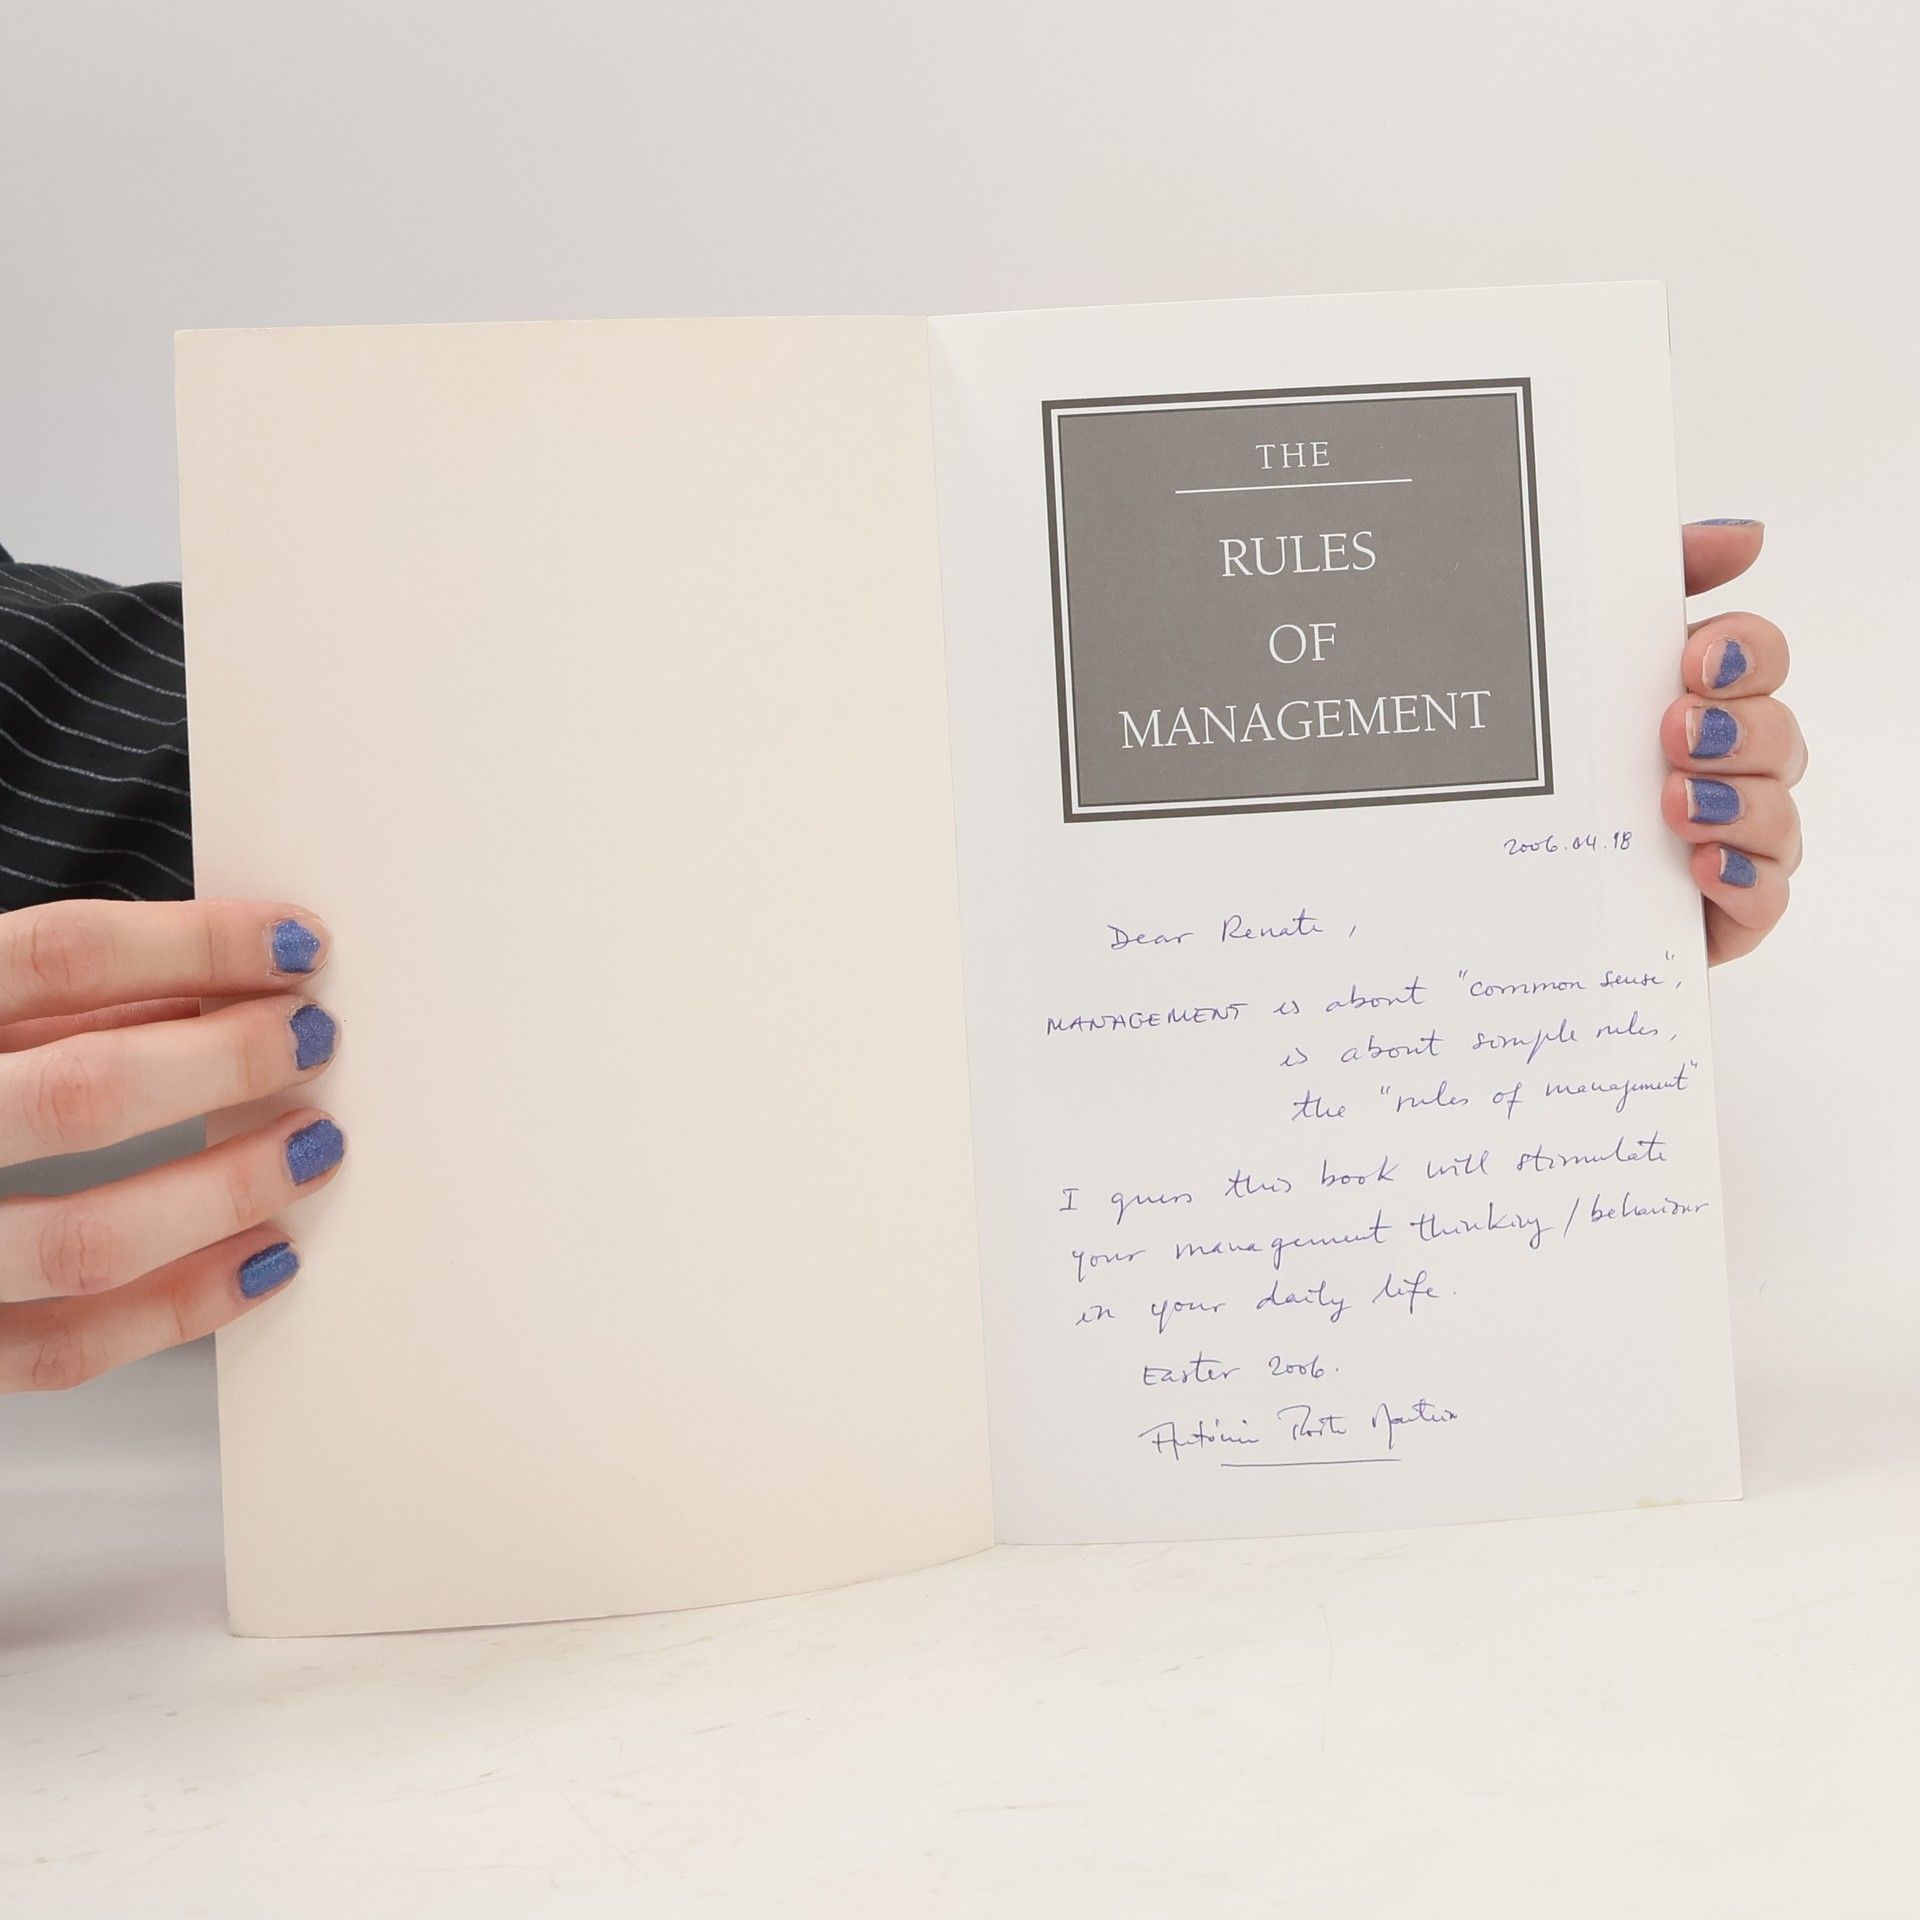 THE
RULES
OF
MANAGEMENT
2006.04.18
Dear Renate,
MANAGEMENT is about "common sense",
is about simple rules,
the "rules of management"
I guess this book will stimulate
your management thinking / behaviour
in your daily life.
Easter 2006.
António